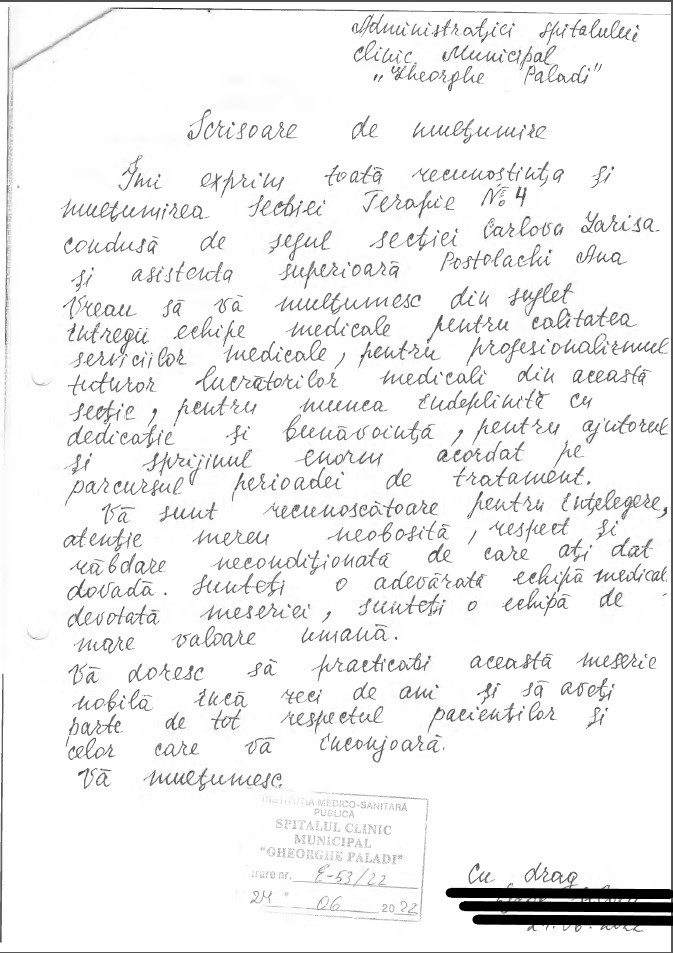 Administrației spitalului
clinic Municipal
„Gheorghe Paladi"
Scrisoare de mulțumire
Îmi exprim toată recunoștința și
mulțumirea Secției Terapie № 4
condusă de șeful secției Carlova Larisa
și asistenta superioară Postolachi Ana
Vreau să vă mulțumesc din suflet
întregii echipe medicale pentru calitatea
serviciilor medicale, pentru profesionalizmul
tuturor lucrătorilor medicali din această
secție, pentru munca îndeplinită cu
dedicație și bunăvoință, pentru ajutorul
și sprijinul enorm acordat pe
parcursul perioadei de tratament.
Vă sunt recunoscătoare pentru înțelegere,
atenție mereu neobosită, respect și
răbdare necondiționată de care ați dat
dovadă. Sunteți o adevărată echipă medical
devotată meseriei, sunteți o echipă de
mare valoare umană.
Vă doresc să practicați această meserie
nobilă încă zeci de ani și să aveți
parte de tot respectul pacienților și
celor care vă înconjoară.
Vă mulțumesc
INSTITUȚIA MEDICO-SANITARĂ
PUBLICĂ
SPITALUL CLINIC
MUNICIPAL
"GHEORGHE PALADI"
trare nr. E-53/22
24 " 06 2022
Cu drag